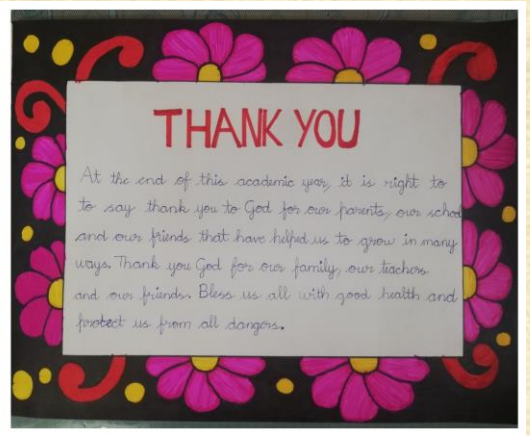 THANK YOU
At the end of this academic year, it is right to
to say thank you to God for our parents, our school
and our friends that have helped us to grow in many
ways. Thank you God for our family, our teachers
and our friends. Bless us all with good health and
protect us from all dangers.